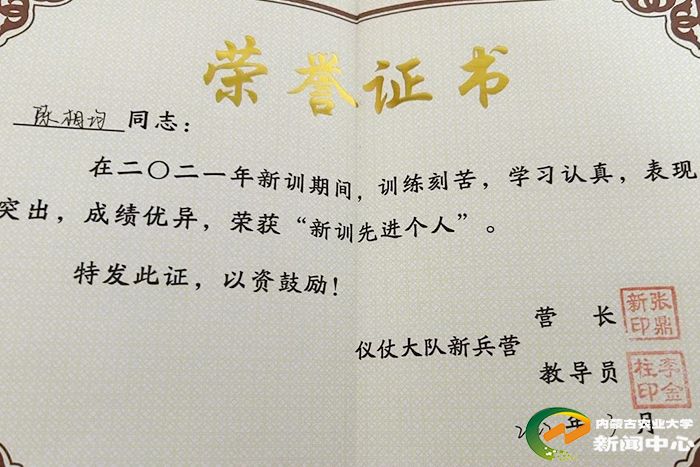 荣誉证书
陈相均 同志：
在二〇二一年新训期间，训练刻苦，学习认真，表现
突出，成绩优异，荣获“新训先进个人”。
特发此证，以资鼓励！
营 长
张鼎新印
仪仗大队新兵营
教导员
李金柱印
年 月
内蒙古农业大学
新闻中心